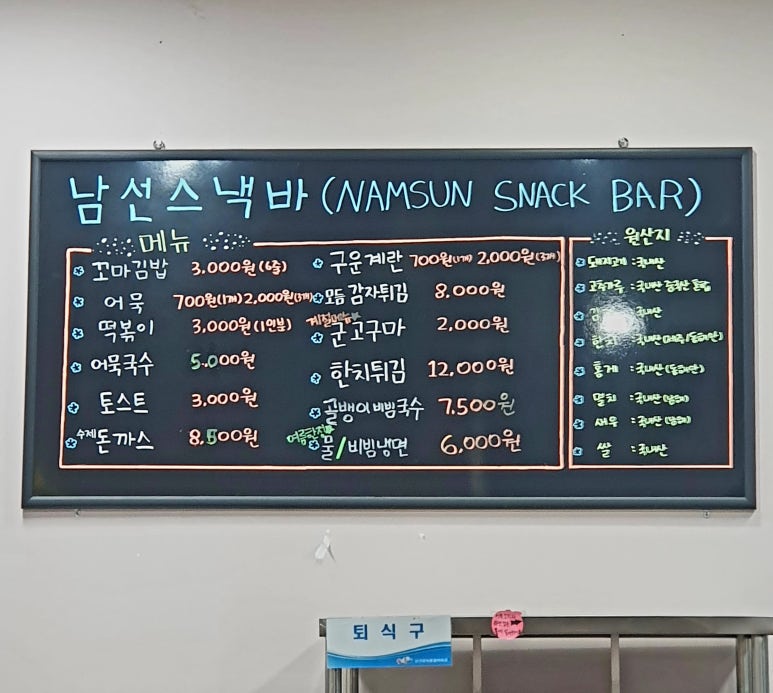 남선스낵바(NAMSUN SNACK BAR)
메뉴
꼬마김밥 3,000원(6줄)
어묵 700원(1개) 2,000원(3개)
떡볶이 3,000원(1인분)
어묵국수 5.000원
토스트 3,000원
수제 돈까스 8,500원
구운계란 700원(1개) 2,000원(3개)
모듬 감자튀김 8,000원
군고구마 2,000원
한치튀김 12,000원
골뱅이비빔국수 7.500원
여름한정
물/비빔냉면 6,000원
원산지
돼지고기 :국내산
고춧가루 :국내산 중국산
김 국내산
한치 :국내산
홍게 :국내산(동해안)
멸치 :국내산(남해)
새우 :국내산(남해)
쌀 :국내산
퇴식구